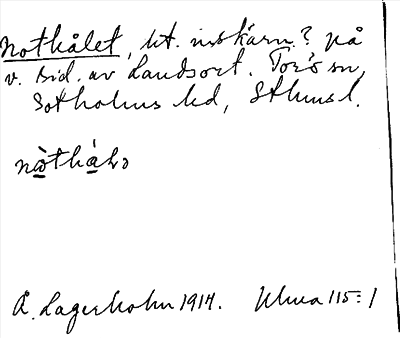 Nothålet, lit. inskärn? på
v. sid. av Landsort. Torö sn,
Sotholms hd, Sthms l.
nòthálə
Å. Lagerholm 1914. Ulma 115:1